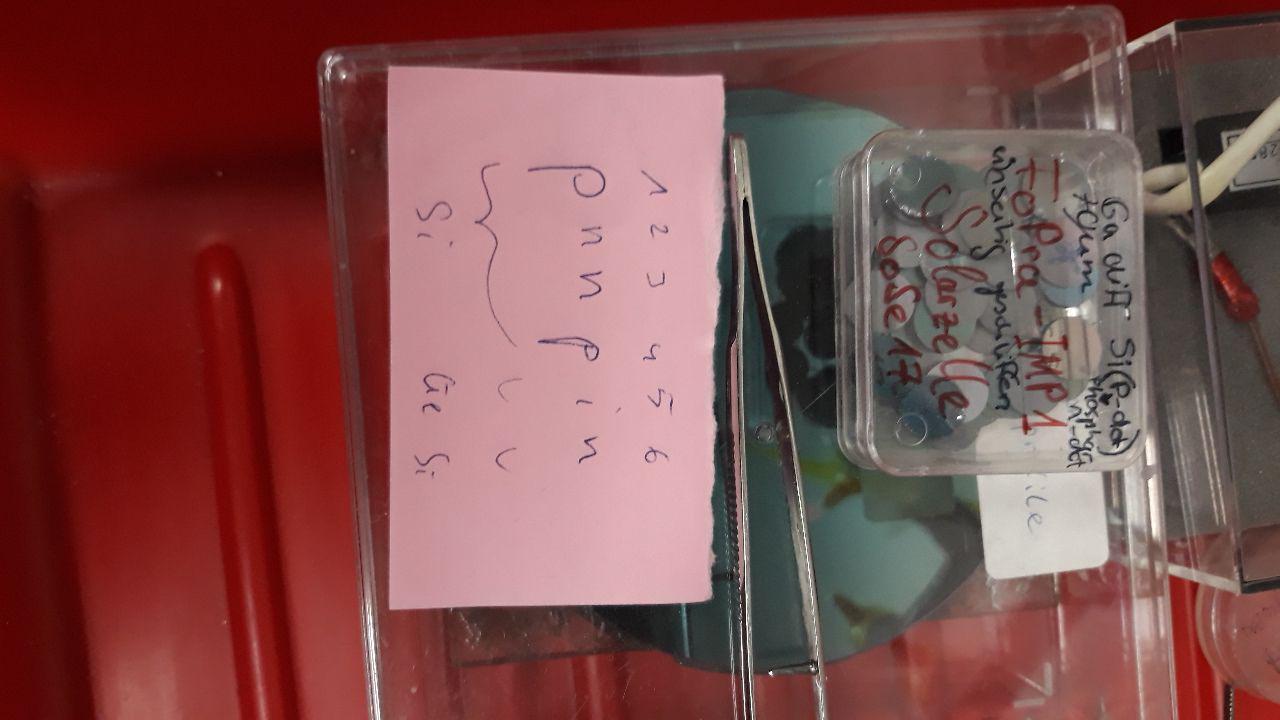 Ga diff Si(P-dot)
70µm Phosphor
n-dot
FoPra-IMP1
einseitig geschliffen
Solarzelle
SoSe 17
1 2 3 4 5 6
p n n p i n
Si Ge Si